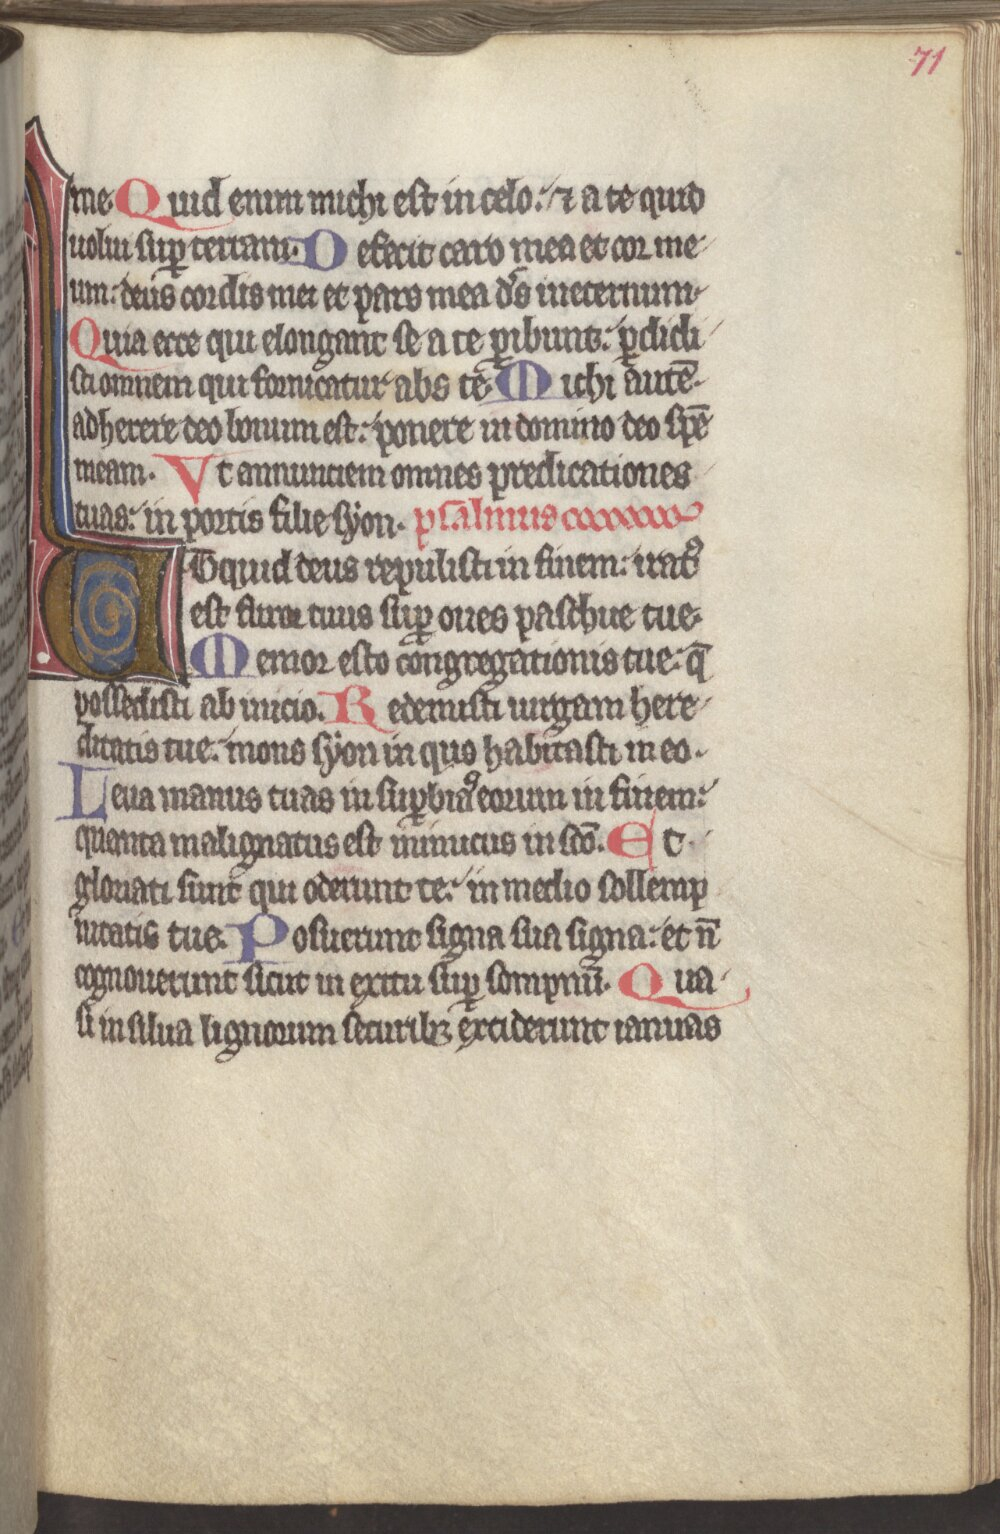 71
me. Quid enim michi est in celo: ⁊ a te quid
uolui suꝑ terram. Defecit caro mea et cor me
um: deus cordis mei et pars mea ds̄ ineternum.
Quia ecce qui elongant se a te ꝑibunt: ꝑdidi
sti omnem qui fornicatur abs te. Michi autē.
adherere deo bonum est: ponere in domino deo spē
meam. Vt annunciem omnes predicationes
tuas: in portis filie syon. psalmus
Vtquid deus repulisti in finem: iratꝰ
est furor tuus suꝑ oues paschue tue.
Memor esto congregationis tue: q̄
possedisti ab inicio. Redemisti uirgam here
ditatis tue: mons syon in quo habitasti in eo.
Leua manus tuas in suꝑbias eorum in finem:
quanta malignatus est inimicus in scō. Et
gloriati sunt qui oderunt te: in medio sollemp
nitatis tue. Posuerunt signa sua signa: et n̄
cognouerunt sicut in exitu suꝑ sompnū. Qua
si in silua lignorum securibꝫ exciderunt ianuas